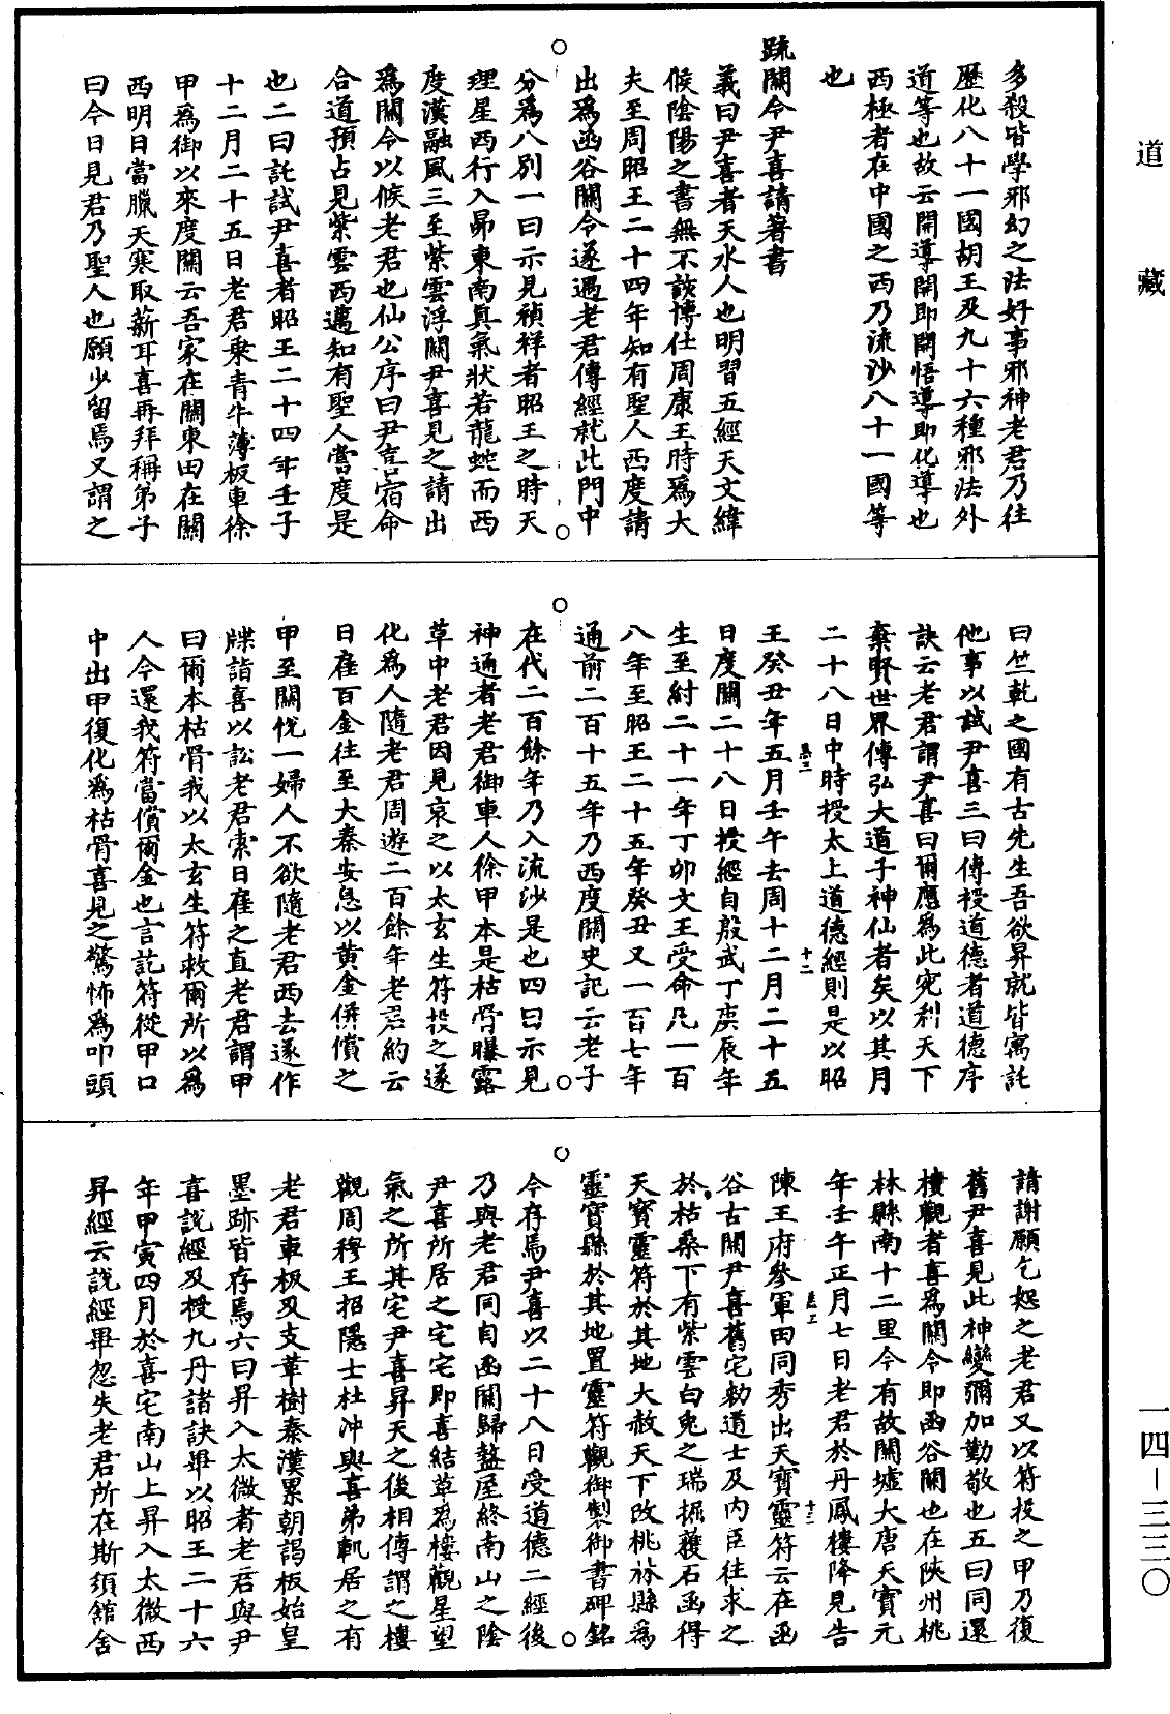 道藏
一四－三三〇
多殺皆學邪幻之法好事邪神老君乃往
歷化八十一國胡王及九十六種邪法外
道等也故云開導開即開悟導即化導也
西極者在中國之西乃流沙八十一國等
也
疏關令尹喜請著書
義曰尹喜者天水人也明習五經天文緯
候陰陽之書無不該博仕周康王時爲大
夫至周昭王二十四年知有聖人西度請
出爲函谷關令遂遇老君傳經就此門中
分爲八別一曰示見禎祥者昭王之時天
理星西行入昴東南真氣狀若龍蛇而西
度漢融風三至紫雲浮關尹喜見之請出
爲關令以候老君也仙公序曰尹喜宿命
合道預占見紫雲西邁知有聖人當度是
也二曰託試尹喜者昭王二十四年壬子
十二月二十五日老君乘青牛薄板車徐
甲爲御以來度關云吾家在關東田在關
西明日當臘天寒取薪耳喜再拜稱弟子
曰今日見君乃聖人也願少留焉又謂之
曰竺乾之國有古先生吾欲昇就皆寓託
他事以試尹喜三曰傳授道德者道德序
訣云老君謂尹喜曰爾應爲此宛利天下
棄賢世界傳弘大道子神仙者矣以其月
二十八日中時授太上道德經則是以昭
王癸丑年五月壬午去周十二月二十五
日度關二十八日授經自殷武丁庚辰年
生至紂二十一年丁卯文王受命凡一百
八年至昭王二十五年癸丑又一百七年
通前二百十五年乃西度關史記云老子
在代二百餘年乃入流沙是也四曰示見
神通者老君御車人徐甲本是枯骨曝露
草中老君因見哀之以太玄生符投之遂
化爲人隨老君周遊二百餘年老君約云
日雇百金往至大秦安息以黄金併償之
甲至關悅一婦人不欲隨老君西去遂作
牒詣喜以訟老君索日雇之直老君謂甲
曰爾本枯骨我以太玄生符救爾所以爲
人今還我符當償爾金也言訖符從甲口
中出甲復化爲枯骨喜見之驚怖爲叩頭
請謝願乞恕之老君又以符投之甲乃復
舊尹喜見此神變彌加勤敬也五曰同還
樓觀者喜爲關令即函谷關也在陝州桃
林縣南十二里今有故關墟大唐天寶元
年壬午正月七日老君於丹鳳樓降見告
陳王府參軍田同秀出天寶靈符云在函
谷古關尹喜舊宅勅道士及内臣往求之
於枯桑下有紫雲白兔之瑞掘獲石函得
天寶靈符於其地大赦天下改桃林縣爲
靈寶縣於其地置靈符觀御製御書碑銘
今存焉尹喜以二十八日受道德二經後
乃與老君同自函關歸盩厔終南山之陰
尹喜所居之宅宅即喜結草爲樓觀星望
氣之所其宅尹喜昇天之後相傳謂之樓
觀周穆王招隱士杜沖與喜弟軌居之有
老君車板及支革樹秦漢累朝謁板始皇
墨跡皆存焉六曰昇入太微者老君與尹
喜說經及授九丹諸訣畢以昭王二十六
年甲寅四月於喜宅南山上昇入太微西
昇經云說經畢忽失老君所在斯須館舍